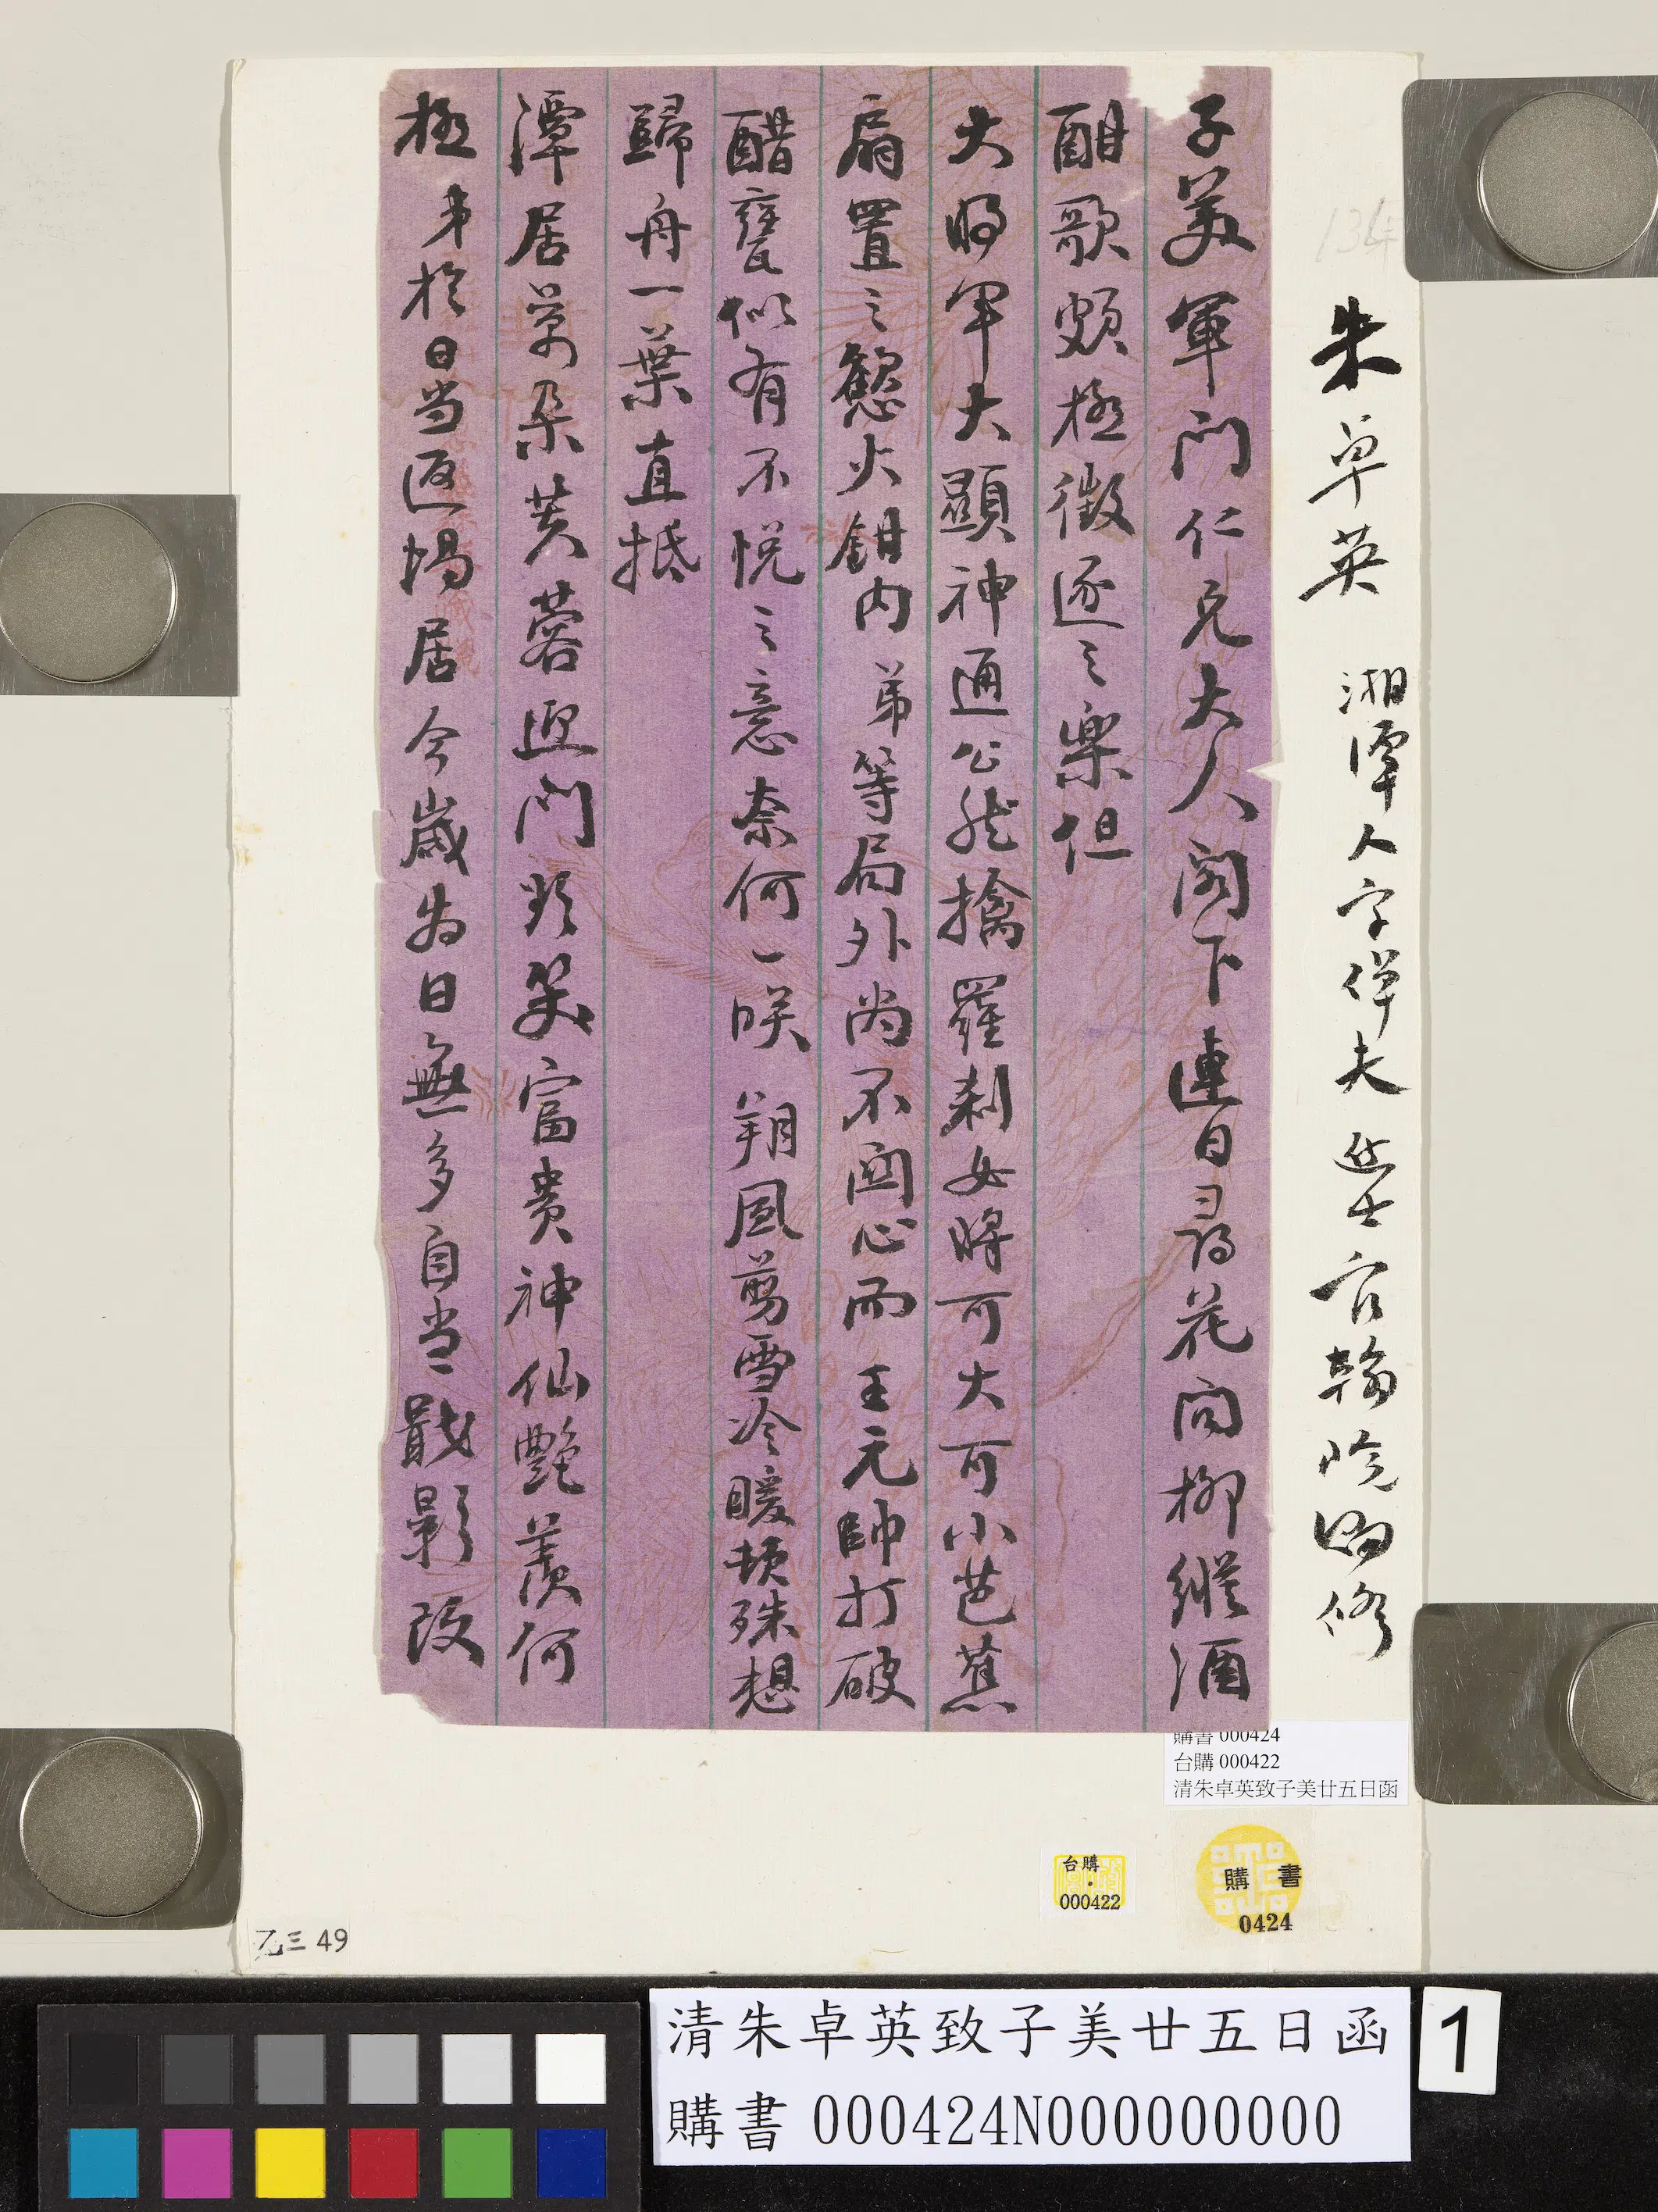 朱卓英 湘潭人字倬夫 進士官翰院編修
子美軍門仁兄大人閣下連日尋花問柳縱酒
酣歌頗極徵逐之樂但
大將軍大顯神通公然擒羅剎女將可大可小芭蕉
扇置之憖火鉗內弟等局外尚不關心而王元帥打破
醋甕似有不悅之意奈何一咲朔風剪雪冷暖頓殊想
歸舟一葉直抵
潭居萬朵芙蓉迎門歡笑富貴神仙艷羨何
極弟於日當返塲居今歲為日無多自當戢影改
134
購書 000424
台購 000422
清朱卓英致子美廿五日函
台購
000422
購書
0424
乙三 49
清朱卓英致子美廿五日函
購書 000424N000000000
1